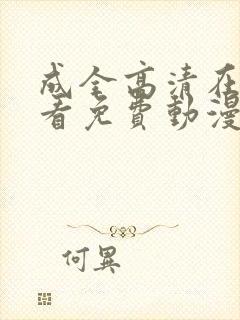 成全高清在
看免費動漫
何異